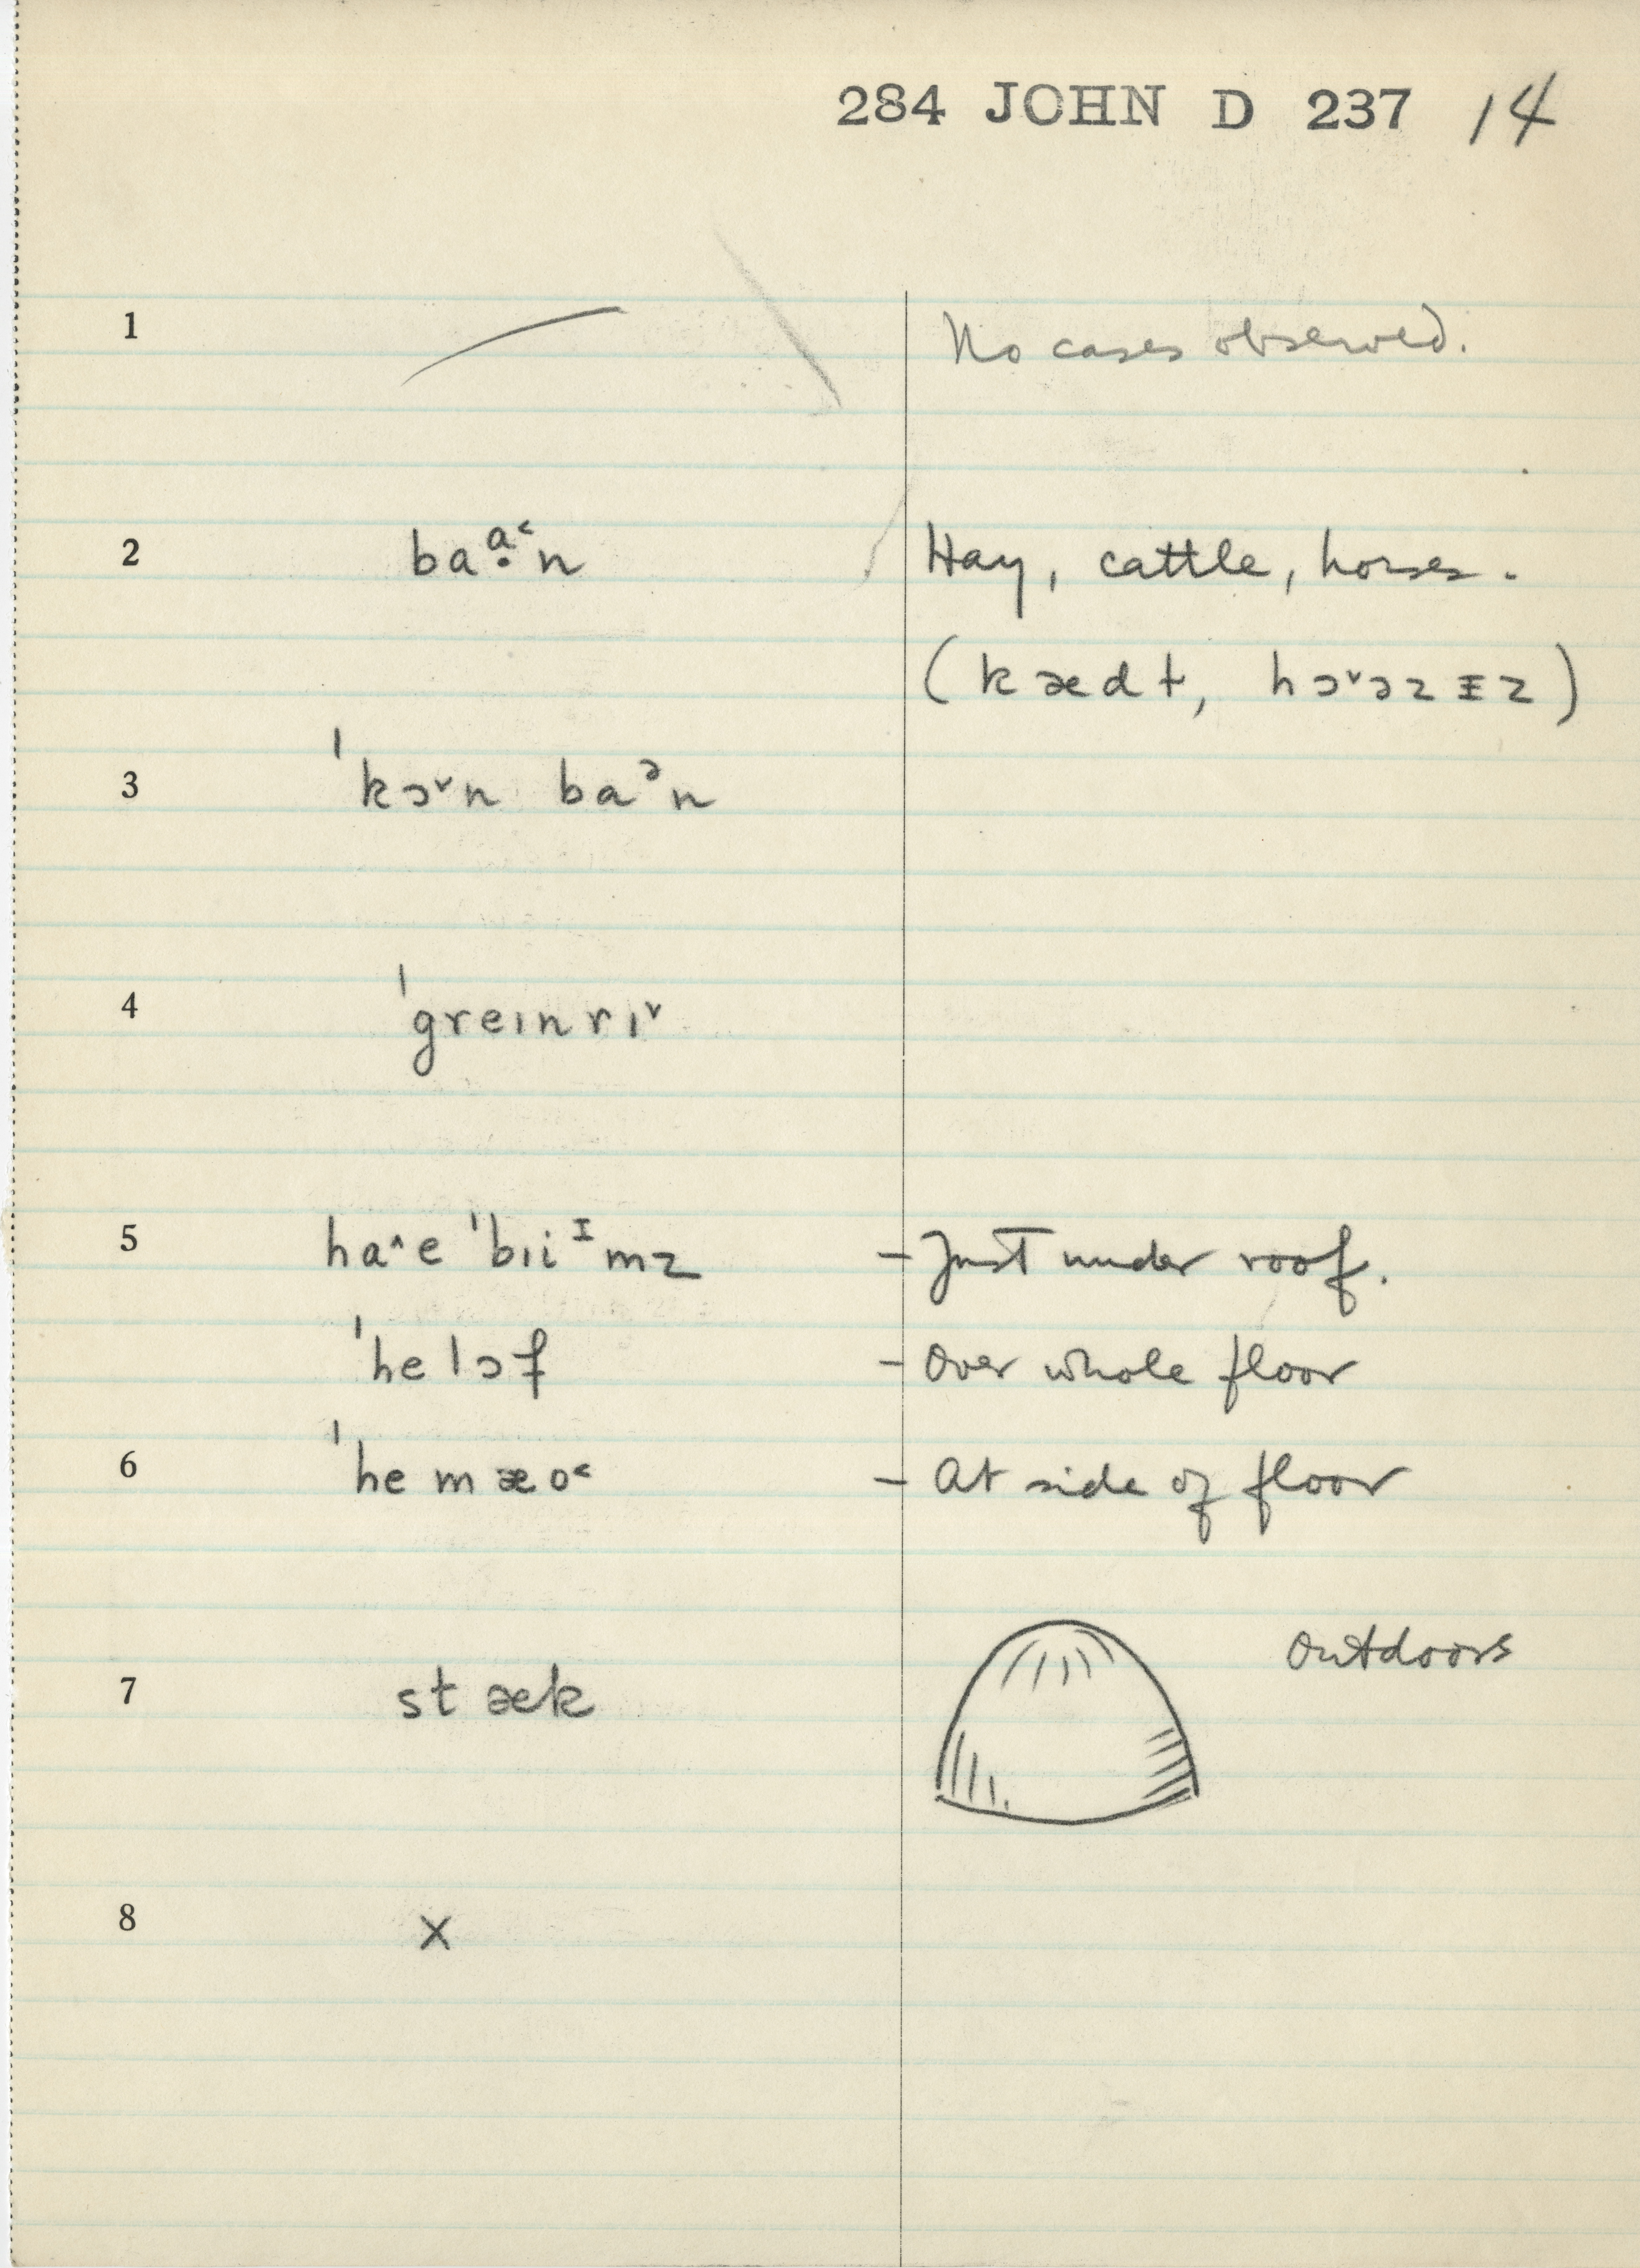 284 JOHN D 237 14
1 No cases observed.
2 baɑ̣˂n Hay, cattle, horses.
(kædɫ, hɔ˅ɔzɪ̵z)
3 ˈkɔ˅n baᵊn
4 ˈgreɪnrɪ˅
5 ha˄e ˈbɪiᶦmz – Just under roof.
ˈhelɔf – Over whole floor
6 ˈhemæo˂ – At side of floor
7 stæk Outdoors
8 x